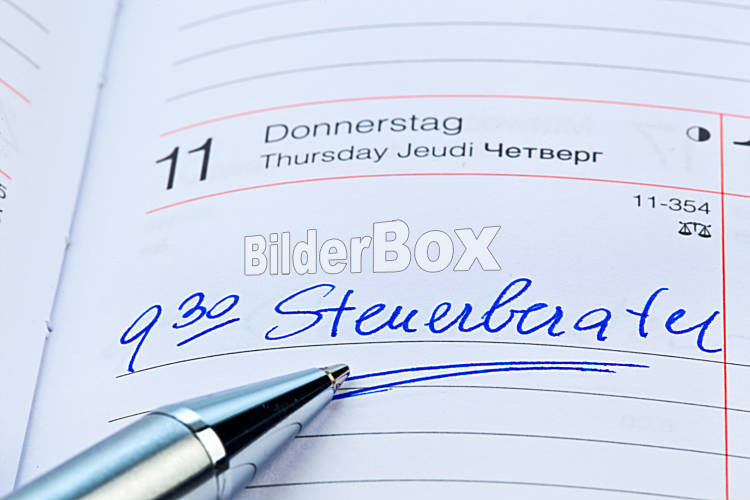 11
Donnerstag
Thursday Jeudi Четверг
11-354
BilderBox
9 30 Steuerberater